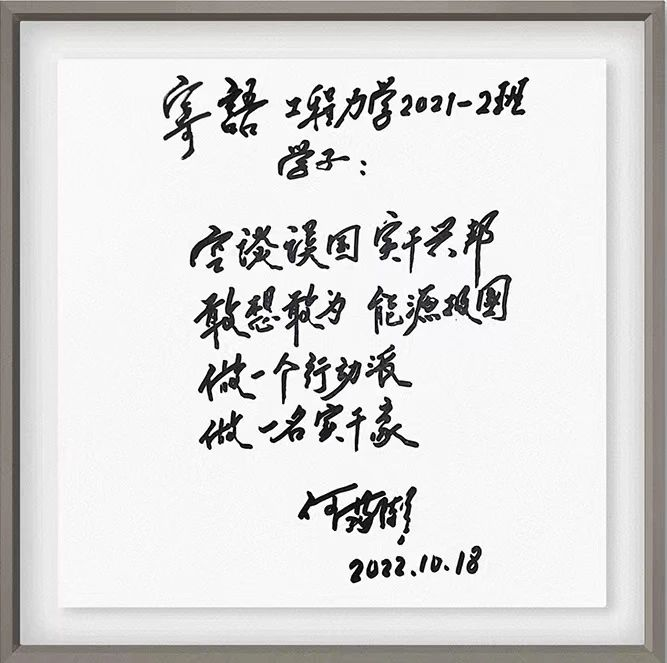 寄語 工程力学2021-2班
学子：
空谈误国 实干兴邦
敢想敢为 能源报國
做一个行动派
做一名实干家
何满潮
2022.10.18